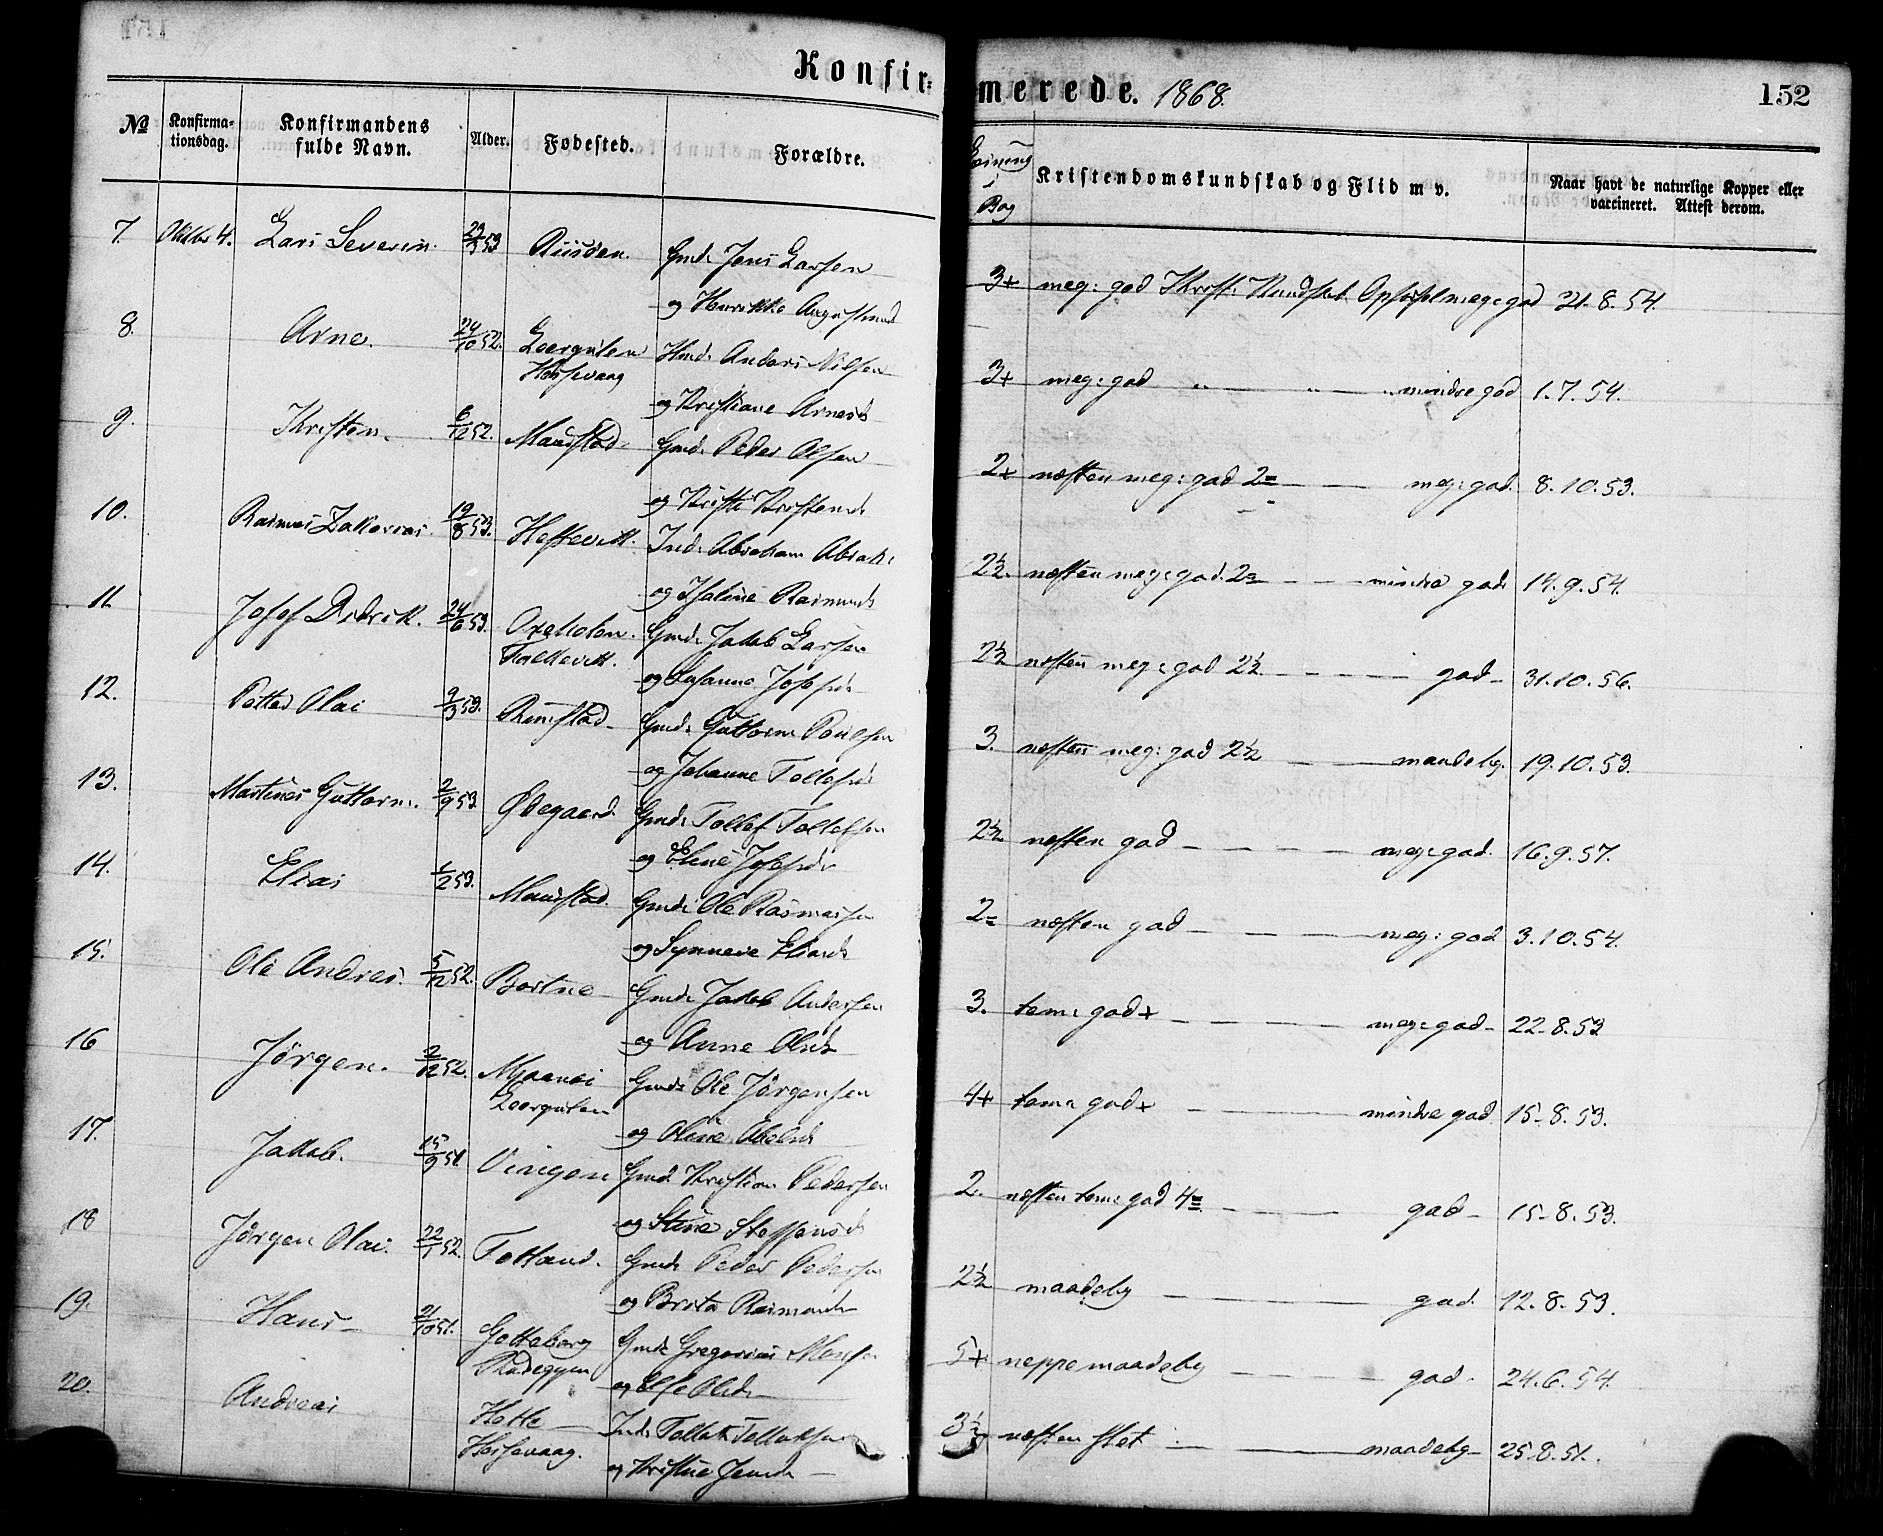 Konfir-merede. 1868. 152
No Konfirma-tionsdag. Konfirmandens fulde Navn. Alder. Fødested. Forældre. i Bog Kristendomskundskab og Flid m v. Naar havt de naturlige Kopper eller vaccineret. Attest derom.
7. Oktbr 4. Lars Severin. 23/3 53 Riisöen. Gmd: Jens Larsen
og Henrikke Augustinusd
3+ meg: god Krist: Kundskab Opførsel meg: god 21.8.54.
8. Arne. 24/10 52. Leergulen Hd: Anders Nilsen
Hessevaag og Kristiane Arnesd
3+ meg: god „ — „ — mindre god 1.7.54.
9. Kristen. 6/12 52. Maurstad. Gmd: Peder Olsen
og Kristi Kristensd
2+ næsten meg: god 2= — — meg: god. 8.10.53.
10. Rasmus Zakarias. 19/8 53. Hessevik. Ind: Abraham Abrah:
og Rasmusd
2½. næsten meg: god. 2= — — — mindre god 14.9.54.
11. Josef Didrik. 24/6 53. Oxeholm. Gmd: Jakob Larsen
Falkevik. og Susanne Josefsd:
2½ næsten meg: god 2½. — — — god — 31.10.56.
12. Petter Olai 9/3 53. Rimstad — Gmd: Guttorm Poulsen
og Johanne Tollefsd:
3. næsten meg: god 2½ — — maadelig. 19.10.53.
13. Martinus Guttorm. 2/9 53 Ødegaard. Gmd: Tollef Tollefsen
og Elene Josefsd:
2½ næsten god — — — — meg: god. 16.9.57.
14. Elias 1/2 53. Maurstad. Gmd: Ole Rasmussen
og Synneve Eliasd:
2= næsten god — — — meg: god. 3.10.54.
15. Ole Andreas. 5/12 52. Bortne — Gmd: Jakob Andersen
og Anne Olsd:
3. tem: god + — — — meg: god — 22.8.53
16 Jörgen. 2/12 52. Myranæs Gmd: Ole Jörgensen
Leergulen og Oline Abelsd
4+ tem: god + — — — mindre god. 15.8.53.
17. Jakob. 15/9 51. Vingen Gmd: Kristian Pedersen
og Stine Steffensd:
2. næsten tem: god 4= — — — god — 15.8.53.
18 Jörgen Olai. 22/1 52. Totland. Gmd: Peder Pedersen
og Brita Rasmusd:
2½ maadelig — — — god. 12.8.53.
19. Hans — /10 51. Gotteborg Gmd: Gregorius Monsen
og Else Olsd: —
5+ neppe maadelig — — — god. 24.6.54.
20. Andreas Hatle — Ind: Tollak Tollaksen
Hessevaag. og Kristine Jensd: —
3½ næsten slet — — — maadelig — 25.8.51.